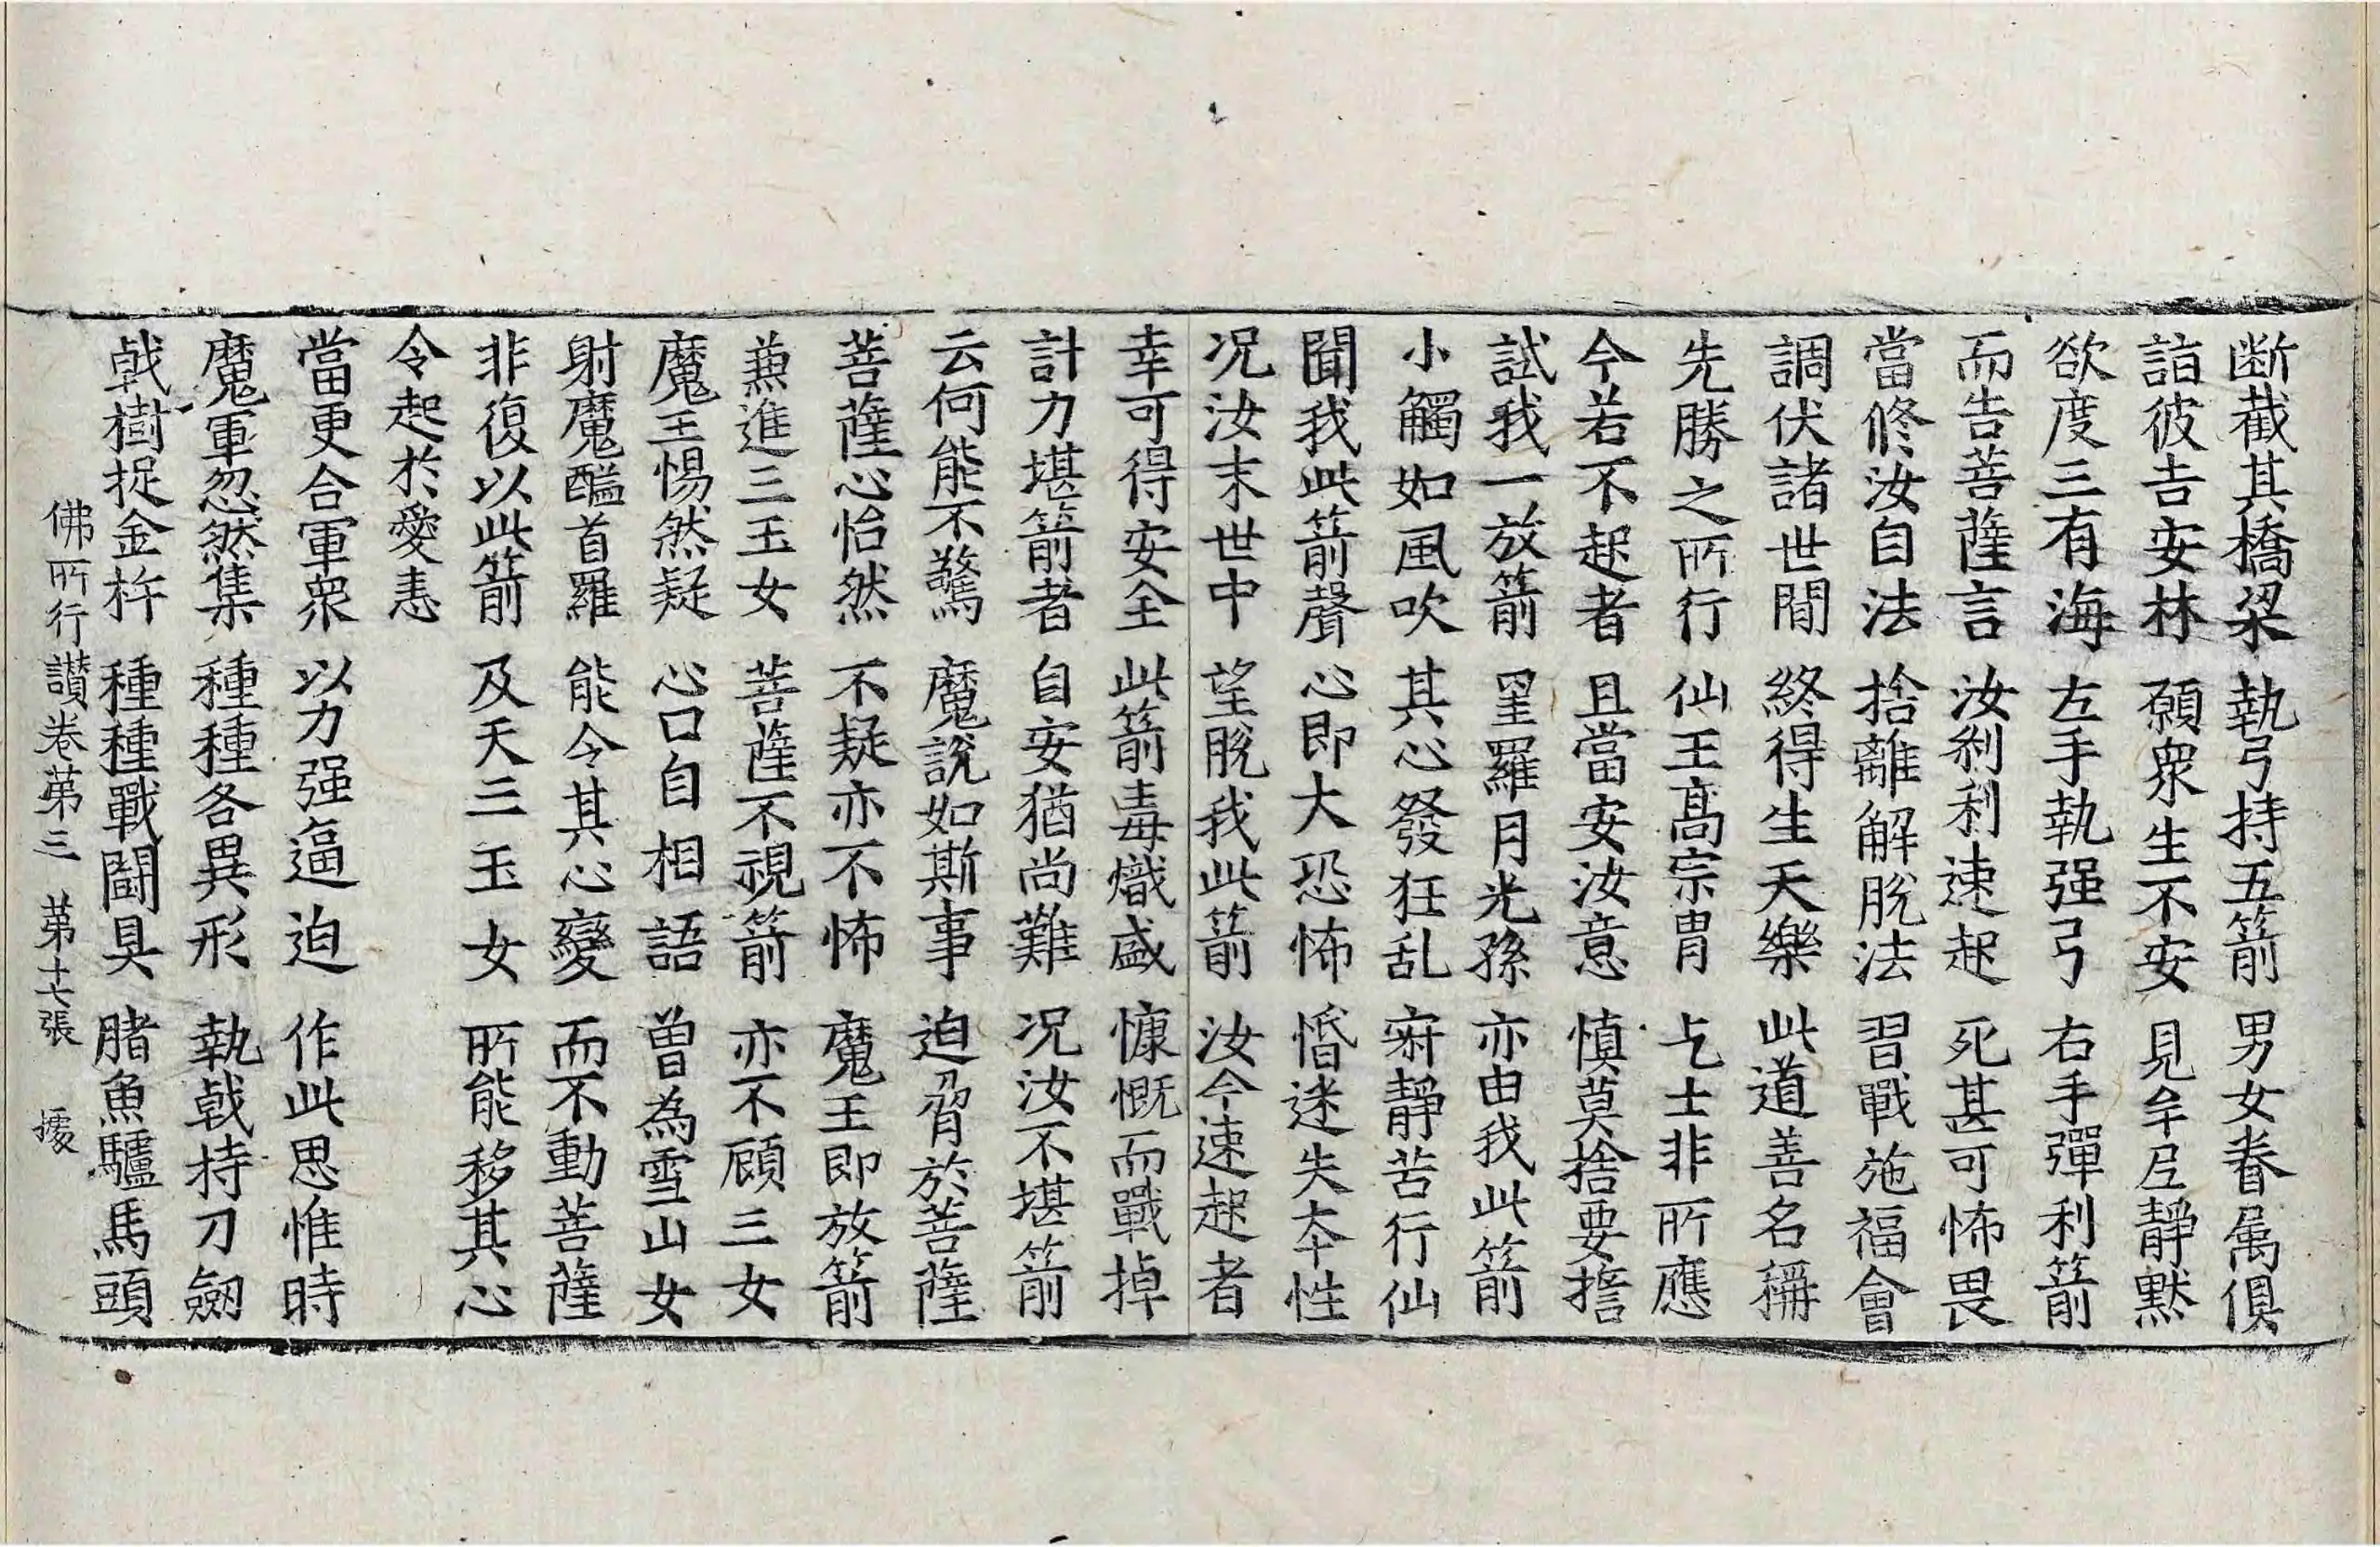 断截其橋梁 執弓持五箭 男女眷属俱
詣彼吉安林 願衆生不安 見牟尼靜黙
欲度三有海 左手執强弓 右手彈利箭
而告菩薩言 汝刹利速起 死甚可怖畏
當修汝自法 捨離解脫法 習戰施福會
調伏諸世間 終得生天樂 此道善名稱
先勝之所行 仙王高宗胄 乞士非所應
今若不起者 且當安汝意 慎莫捨要誓
試我一放箭 罣羅月光孫 亦由我此箭
小觸如風吹 其心發狂乱 寂靜苦行仙
聞我此箭聲 心即大恐怖 惛迷失本性
况汝末世中 望脫我此箭 汝今速起者
幸可得安全 此箭毒熾盛 慷慨而戰掉
計力堪箭者 自安猶尚難 况汝不堪箭
云何能不驚 魔說如斯事 迫脅於菩薩
菩薩心怡然 不疑亦不怖 魔王即放箭
兼進三玉女 菩薩不視箭 亦不顧三女
魔王惕然疑 心口自相語 曽為雪山女
射魔醯首羅 能令其心變 而不動菩薩
非復以此箭 及天三玉女 所能移其心
令起於愛恚
當更合軍衆 以力强逼迫 作此思惟時
魔軍忽然集 種種各異形 執戟持刀劒
戟樹捉金杵 種種戰鬪具 䐗魚驢馬頭
佛所行讃卷第三 第十七張 㩀